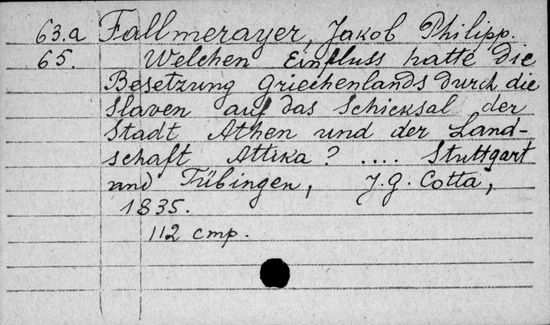 63.a Fallmerayer, Jakob Philipp.
65. Welchen Einfluss hatte die
Besetzung Griechenlands durch die
Slaven auf das Schicksal der
Stadt Athen und der Land-
schaft Attika? .... Stuttgart
und Tübingen, J.G. Cotta,
1835.
112 cmp.